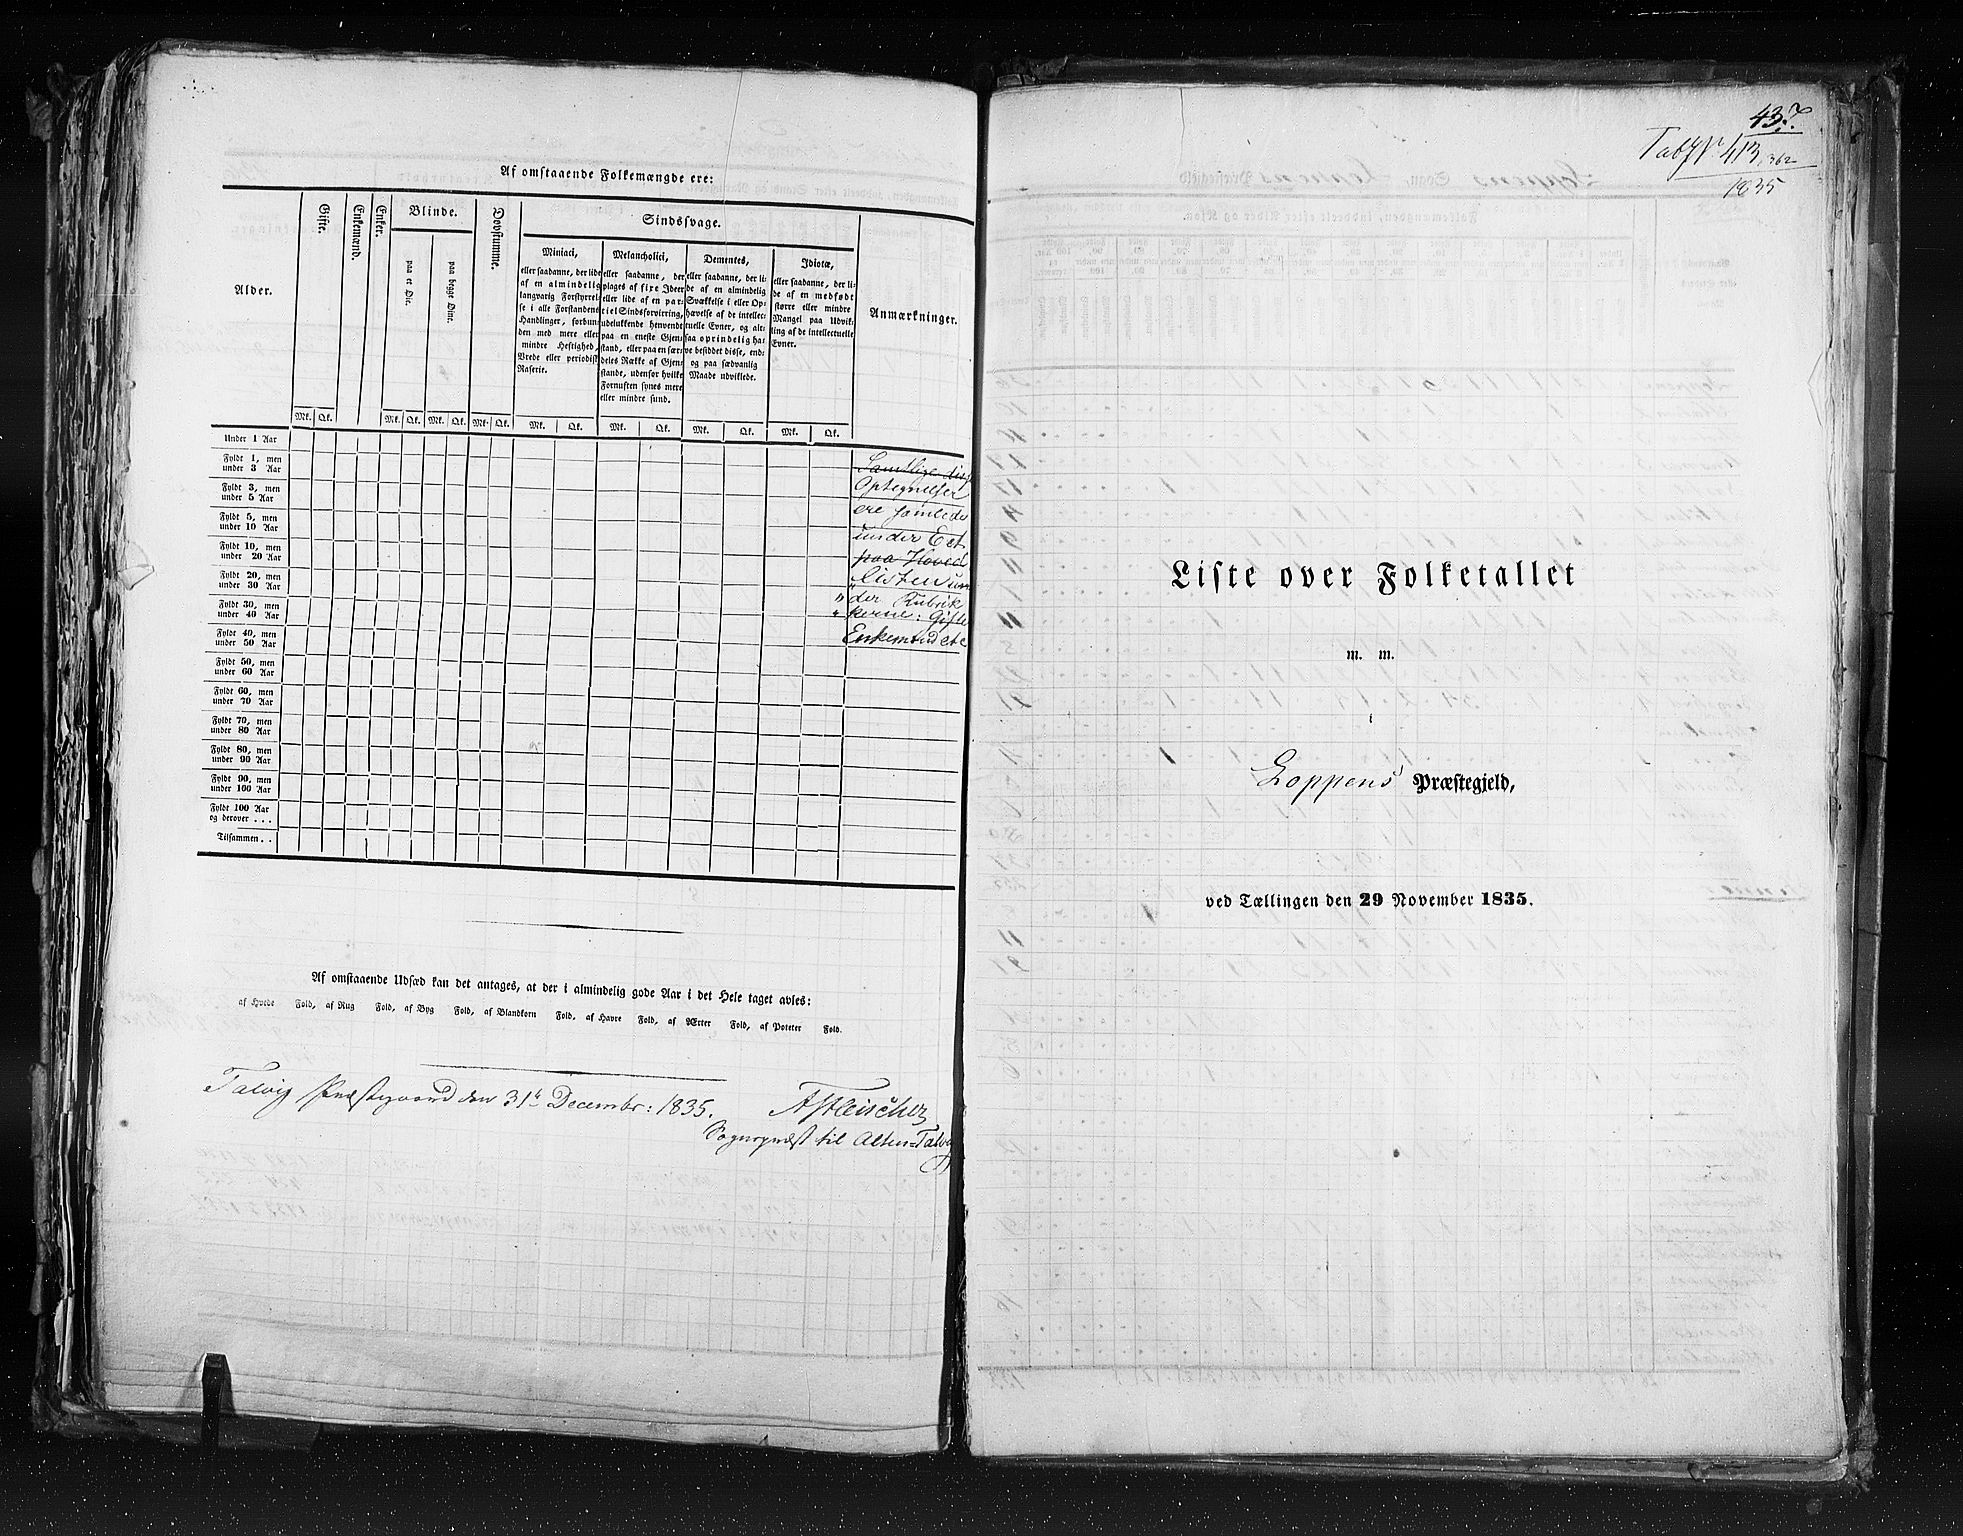 Af omstaaende Folkemængde ere:
Alder.
Gifte.
Enkemænd.
Enker.
Blinde.
paa et Øie.
paa begge Øine.
Døvstumme.
Sindssvage.
Miniaci,
eller saadanne, der lide
af en almindelig
langvarig Forstyrrel-
se i alle Forstandens
Handlinger, forbun-
den med mere eller
mindre Heftighed,
Vrede eller periodisk
Raserie.
Melancholici,
eller saadanne, der
plages af fixe Ideer
eller lide af en par-
tiel Sindsforvirring,
udelukkende henvendt
paa en eneste Gjen-
stand, eller paa en sær-
deles Række af Gjen-
stande, udenfor hvilke
Fornuften synes mere
eller mindre sund.
Dementes,
eller saadanne, der li-
de af en almindelig
Svækkelse i eller Op-
hævelse af de intellec-
tuelle Evner, og alt-
saa oprindelig ha-
ve besiddet disse, end-
og paa sædvanlig
Maade udviklede.
Idiotæ,
eller saadanne, der li-
de af en medfødt
større eller mindre
Mangel paa Udvik-
ling af de intellectuelle
Evner.
Anmærkninger.
Mk. Qk. Mk. Qk. Mk. Qk. Mk. Qk. Mk. Qk. Mk. Qk. Mk. Qk. Mk. Qk.
Under 1 Aar
Fyldt 1, men
under 3 Aar
Fyldt 3, men
under 5 Aar
Fyldt 5, men
under 10 Aar
Fyldt 10, men
under 20 Aar
Fyldt 20, men
under 30 Aar
Fyldt 30, men
under 40 Aar
Fyldt 40, men
under 50 Aar
Fyldt 50, men
under 60 Aar
Fyldt 60, men
under 70 Aar
Fyldt 70, men
under 80 Aar
Fyldt 80, men
under 90 Aar
Fyldt 90, men
under 100 Aar
Fyldt 100 Aar
og derover . . .
Tilsammen . .
Samtlige
Optegnelser
ere samlede
under Eet
paa Hoved
Listen un-
der Rubrik
kerne: Gifte
Enkemænd etc
Af omstaaende Udsæd kan det antages, at der i almindelig gode Aar i det Hele taget avles:
af Hvede Fold, af Rug Fold, af Byg Fold, af Blandkorn Fold, af Havre Fold, af Ærter Fold, af Poteter Fold.
Talvig Præstegaard den 31te Decembr: 1835.
A Fleischer
Sognepræst til Alten-Talvig
437
Tab N: 413, 362
1835
Liste over Folketallet
m. m.
i
Loppens Præstegjeld,
ved Tællingen den 29 November 1835.